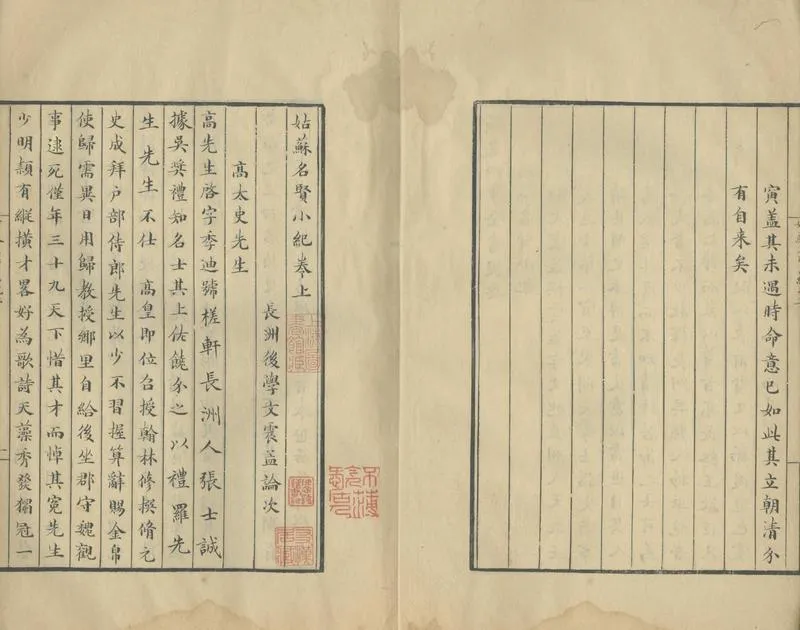 寅盖其未遇時命意已如此其立朝清介
有自来矣
姑蘇名賢小紀卷上
長洲後學文震孟論次
高太史先生
高先生啓字季迪號槎軒長洲人張士誠
據吳獎禮知名士其上佐饒介之以禮羅先
生先生不仕 高皇即位召授翰林修撰脩元
史成拜户部侍郎先生以少不習握算辭賜金帛
使歸需異日用歸教授鄉里自給後坐郡守魏觀
事逮死僅年三十九天下惜其才而悼其冤先生
少明穎有縱橫才畧好為歌詩天藻秀發獨冠一